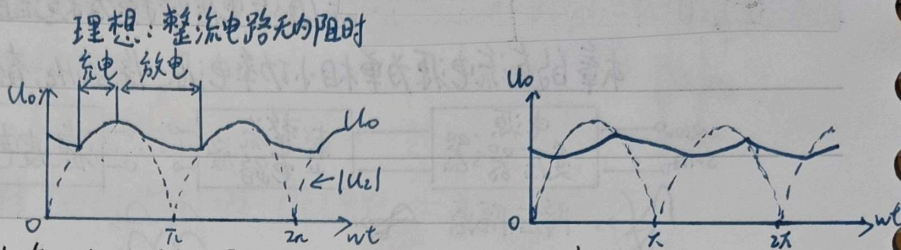 理想:整流电路无内阻时
充电 放电
u₀
u₀
|u₂|
0
π
2π
wt
u₀
0
π
2π
wt